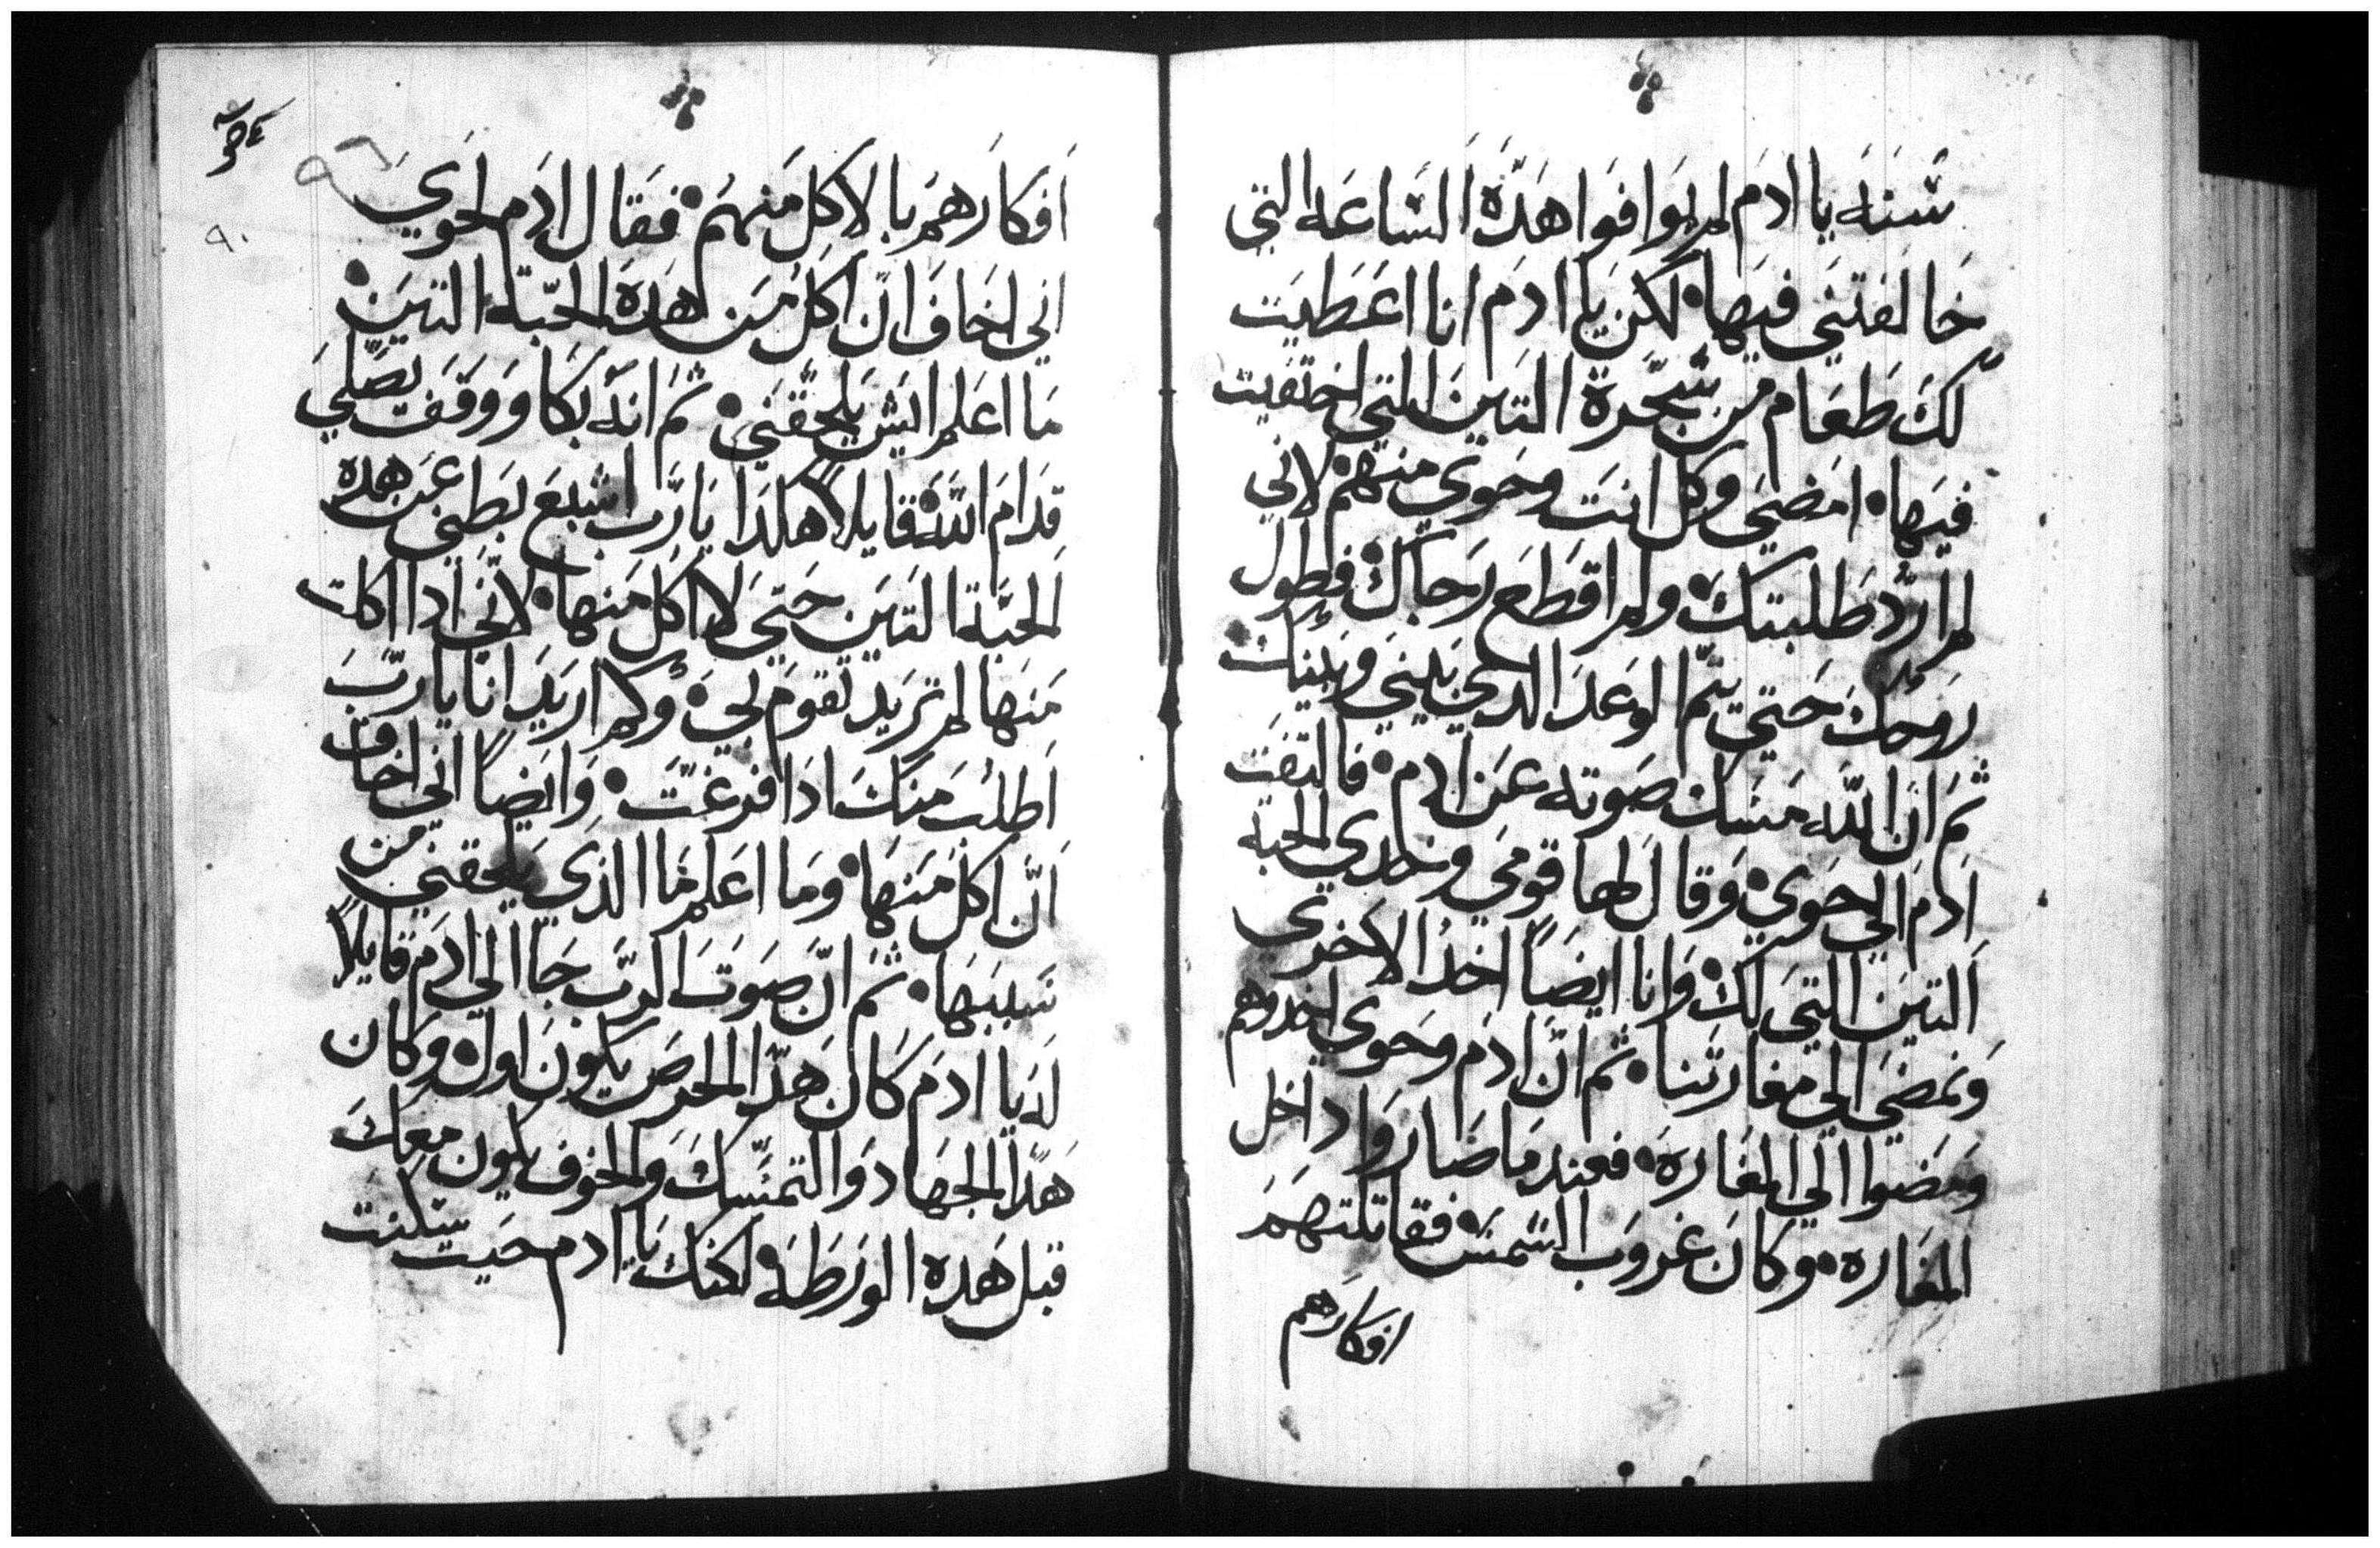 سَنَة يا ادَم لم يوَافوَا هَدِّه السَاعَه التي
خَالفتنَي فيَها۰ لكن يا ادَم انا اعَطيَت
لكَ طَعَام من شجَرة التَين التي اختَفيت
فيَها۰ امَضيَ وكل انتَ وحَوي منهم۰ لاني
لم ارُد طَلبتك۰ ولم اقطَع رَجاك۰ فطول
روَحك حَتي يتَم الوعَد الدي بَيني وبينك
ثمَ ان اللَه مَسَك صَوته عَن ادم۰ فالتفت
ادَم الي حَوي۰ وَقال لهَا قومَي وخدي الحَبه
التَين التي لك۰ وَانا ايضَاً اخد الاخري
وَنمضَي الي مغارتنا۰ ثم انَ ادَم وحَوي اخدوهم
ومَضوا الي المغَارة۰ فعند مَا صَاروَا داخل
المغَاره۰ وكانَ غروَب الشَمسَ۰ فقاتلتهمَ
افكارهم
۹٦
۹۰
اَفكارَهمَ بالاكل مَنهمَ۰ فقَال ادَم لحَوي
اني اخَافَ انَ اكلَ مَن هَده الحَبَة التَين۰
مَا اعَلم ايَش يلحَقنَي۰ ثمَ انَه بَكا وَوَقَفَ يصَلي
قدَامَ اللَه۰ قايلاً هكدَا يَارَب اشبعَ بَطني عَن هَده
الحَبَة التَين حَتيَ لا اكل مَنها۰ لانَي ادا اكلت
مَنَها لم ترَيد تقومَ لي۰ ولم ارَيدَ انَا يارَبَ
اَطلُبَ مَنكَ ادَا فرغَتَ۰ وَايضَاً اني اخاف
اَنَ اكل مَنَهَا۰ ومَا اعَلم مَا الدي يَلحَقني من
سَببَهَا۰ ثم انَ صَوتَ الرَب جَا الي ادَم قايلاً
لهَ يا ادَم كانَ هَدَا الحَرصَ يكونَ اول۰ وكان
هَدَا الجَهادَ وَالتَمسَكَ وَالخوفَ يكون معكَ
قبل هَده الوَرَطَه۰ لكنكَ يا ادم حَيت سكنت